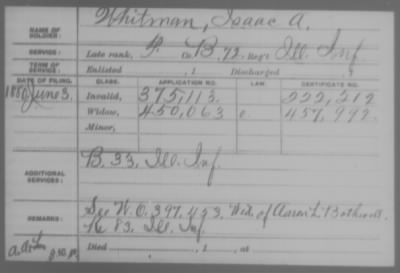 NAME OF SOLDIER: Whitman, Isaac A.
SERVICE: Late rank, P. Co. B, 72 Reg't Ill. Inf.
TERM OF SERVICE: Enlisted , 1 Discharged , 1
DATE OF FILING. CLASS. APPLICATION NO. LAW. CERTIFICATE NO.
1880 June 3. Invalid, 375,113 222,212
Widow, 450,063 457,992
Minor,
ADDITIONAL SERVICES: B. 33. Ill. Inf.
REMARKS: See W.O. 397,423. Wid. of Aaron L.
K 83. Ill. Inf.
Died , 1 , at